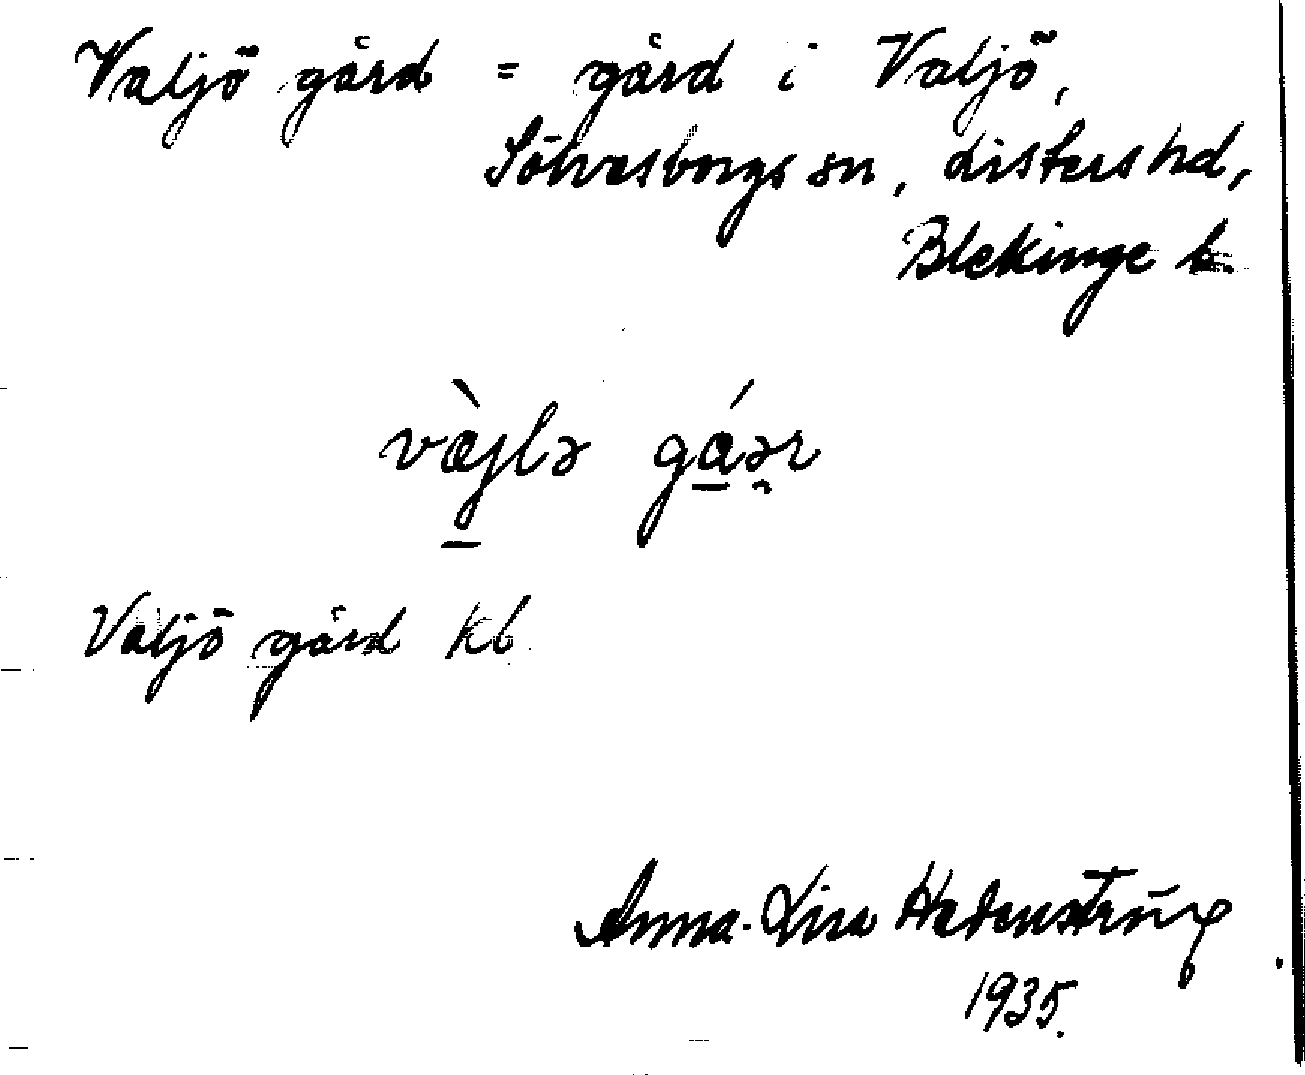 Valjö gård = gård i Valjö,
Sölvesborgs sn, Listers hd,
Blekinge l.
væ̀jlə gáər
Valjö gård Kb
Anna-Lisa
1935.